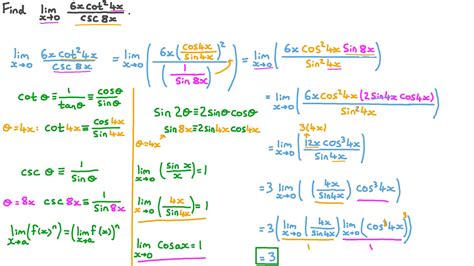 Find lim x→0 6x cot²4x / csc 8x .
lim x→0 6x cot²4x / csc 8x = lim x→0 ( 6x (cos4x / sin4x)² / (1 / sin8x) ) = lim x→0 ( 6x cos²4x sin 8x / sin²4x )
cot θ ≡ 1 / tanθ ≡ cosθ / sinθ
θ = 4x: cot 4x ≡ cos4x / sin4x
csc θ ≡ 1 / sin θ
θ = 8x csc 8x ≡ 1 / sin8x
lim x→a (f(x)ⁿ) = (lim x→a f(x))ⁿ
sin 2θ ≡ 2sinθcosθ
θ=4x sin8x ≡ 2sin4x cos4x
lim x→0 (sin x / x) = 1
lim x→0 (4x / sin4x) = 1
lim x→0 cos ax = 1
= lim x→0 ( 6x cos²4x (2sin4x cos4x) / sin²4x )
3(4x)
= lim x→0 ( 12x cos³4x / sin4x )
= 3 lim x→0 ( (4x / sin4x) cos³4x )
= 3 ( lim x→0 (4x / sin4x) lim x→0 (cos 4x)³ )
1 1
= 3